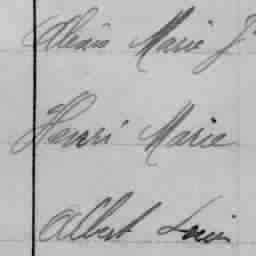 Alexis Marie J
Henri Marie
Albert Louis